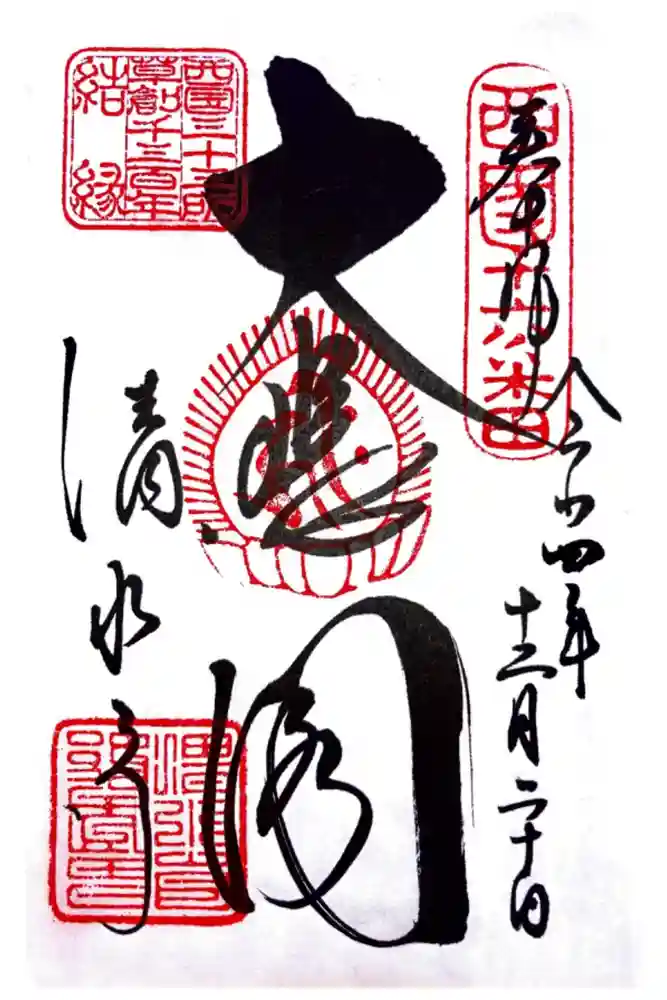 奉拝
西国十六番
令和四年
十二月二十日
大悲閣
西国三十三所
草創千三百年
結縁
清水寺